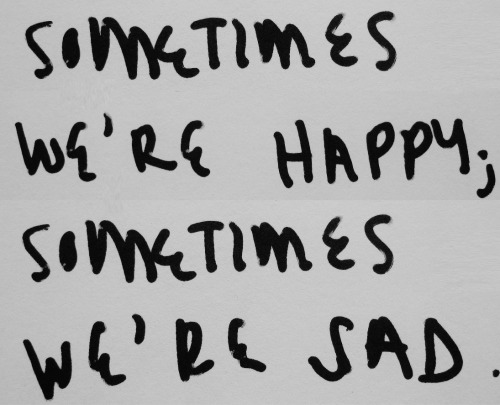 SOMETIMES
WE'RE HAPPY;
SOMETIMES
WE'RE SAD.